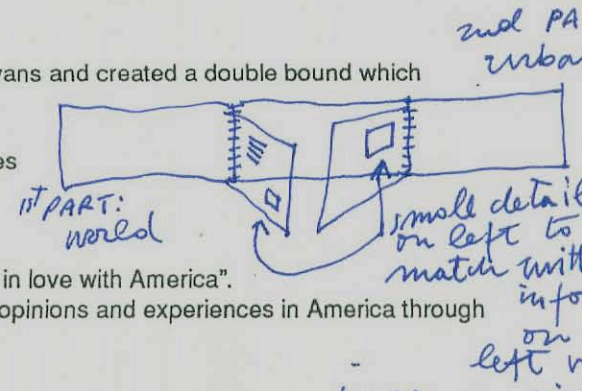 2nd PA
urba
vans and created a double bound which
es
1st PART:
world
small detail
on left to
match with
info
on
left
in love with America".
opinions and experiences in America through